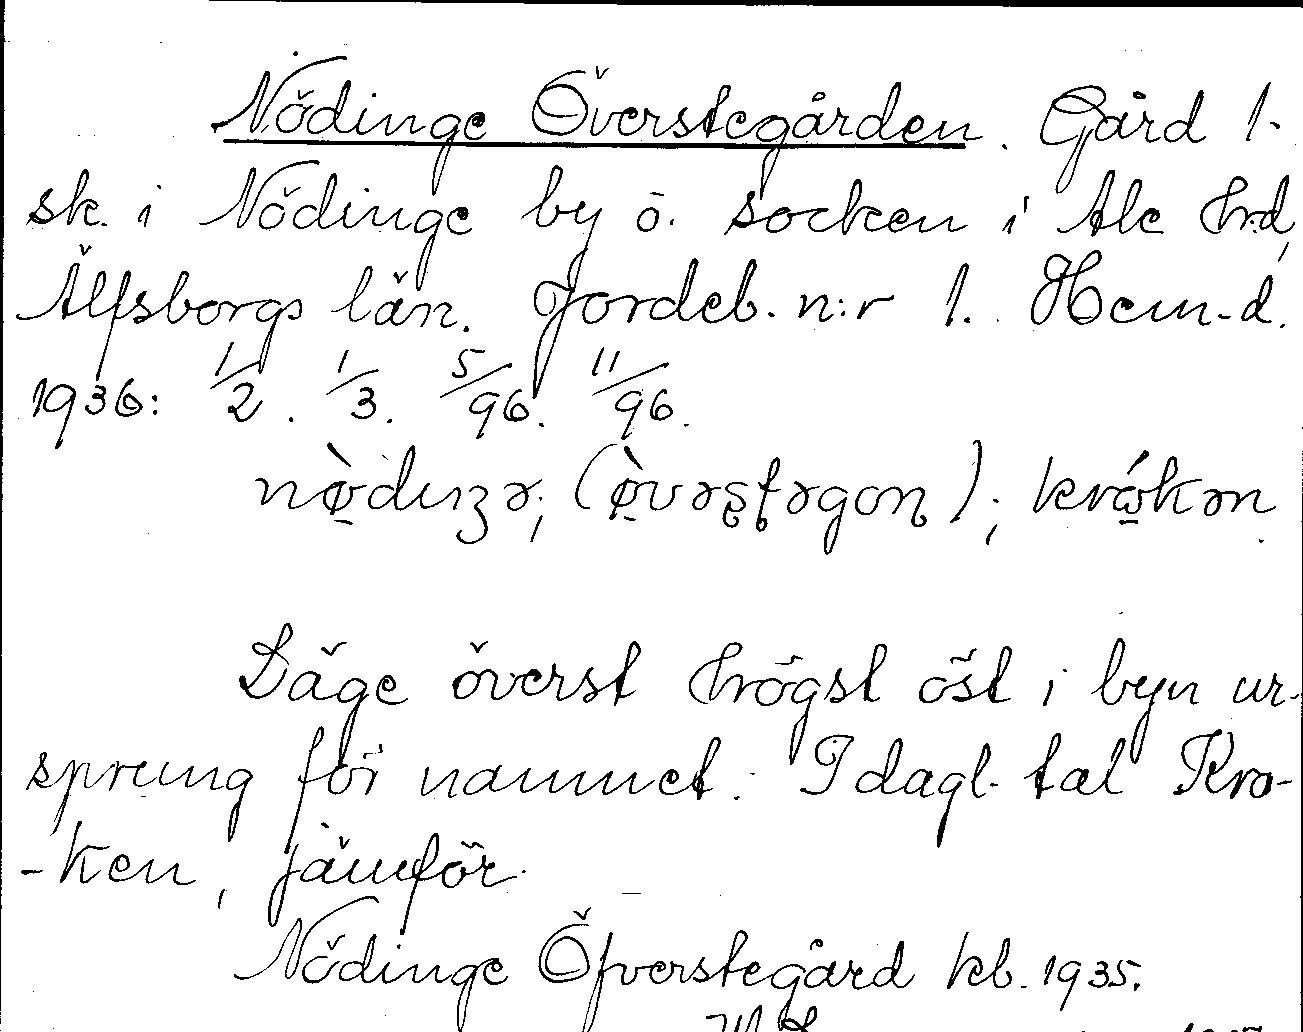 Nödinge Överstegården. Gård 1-
sk. i Nödinge by o. socken i Ale hrd,
Älfsborgs län. Jordeb. n:r 1. Hem.d.
1936: 1/2. 1/3. 5/96. 11/96.
Läge överst högst öst i byn ur-
sprung för namnet. I dagl. tal Kro-
-ken, jämför
Nödinge Öfverstegård kb. 1935.